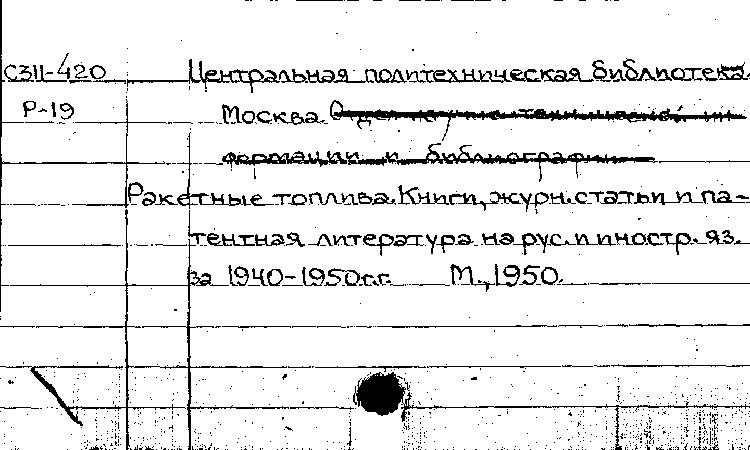 С311-420 Центральная политехническая библиотека.
Р-19 Москва. Отдел научно-технической ин-
формации и библиографии
Ракетные топлива. Книги, журн. статьи и па-
тентная литература на рус. и иностр. яз.
за 1940-1950г.г. М., 1950.